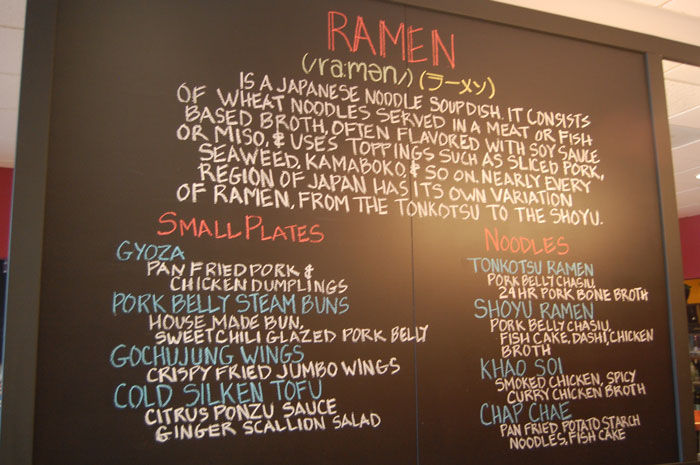 RAMEN
(/ra:mən/) (ラーメン)
IS A JAPANESE NOODLE SOUP DISH. IT CONSISTS
OF WHEAT NOODLES SERVED IN A MEAT OR FISH
BASED BROTH, OFTEN FLAVORED WITH SOY SAUCE
OR MISO, & USES TOPPINGS SUCH AS SLICED PORK,
SEAWEED, KAMABOKO, & SO ON. NEARLY EVERY
REGION OF JAPAN HAS ITS OWN VARIATION
OF RAMEN, FROM THE TONKOTSU TO THE SHOYU.
SMALL PLATES
GYOZA
PAN FRIED PORK &
CHICKEN DUMPLINGS
PORK BELLY STEAM BUNS
HOUSE MADE BUN,
SWEET CHILI GLAZED PORK BELLY
GOCHUJUNG WINGS
CRISPY FRIED JUMBO WINGS
COLD SILKEN TOFU
CITRUS PONZU SAUCE
GINGER SCALLION SALAD
NOODLES
TONKOTSU RAMEN
PORK BELLY CHASIU,
24 HR PORK BONE BROTH
SHOYU RAMEN
PORK BELLY CHASIU,
FISH CAKE, DASHI, CHICKEN
BROTH
KHAO SOI
SMOKED CHICKEN, SPICY
CURRY CHICKEN BROTH
CHAP CHAE
PAN FRIED POTATO STARCH
NOODLES, FISH CAKE